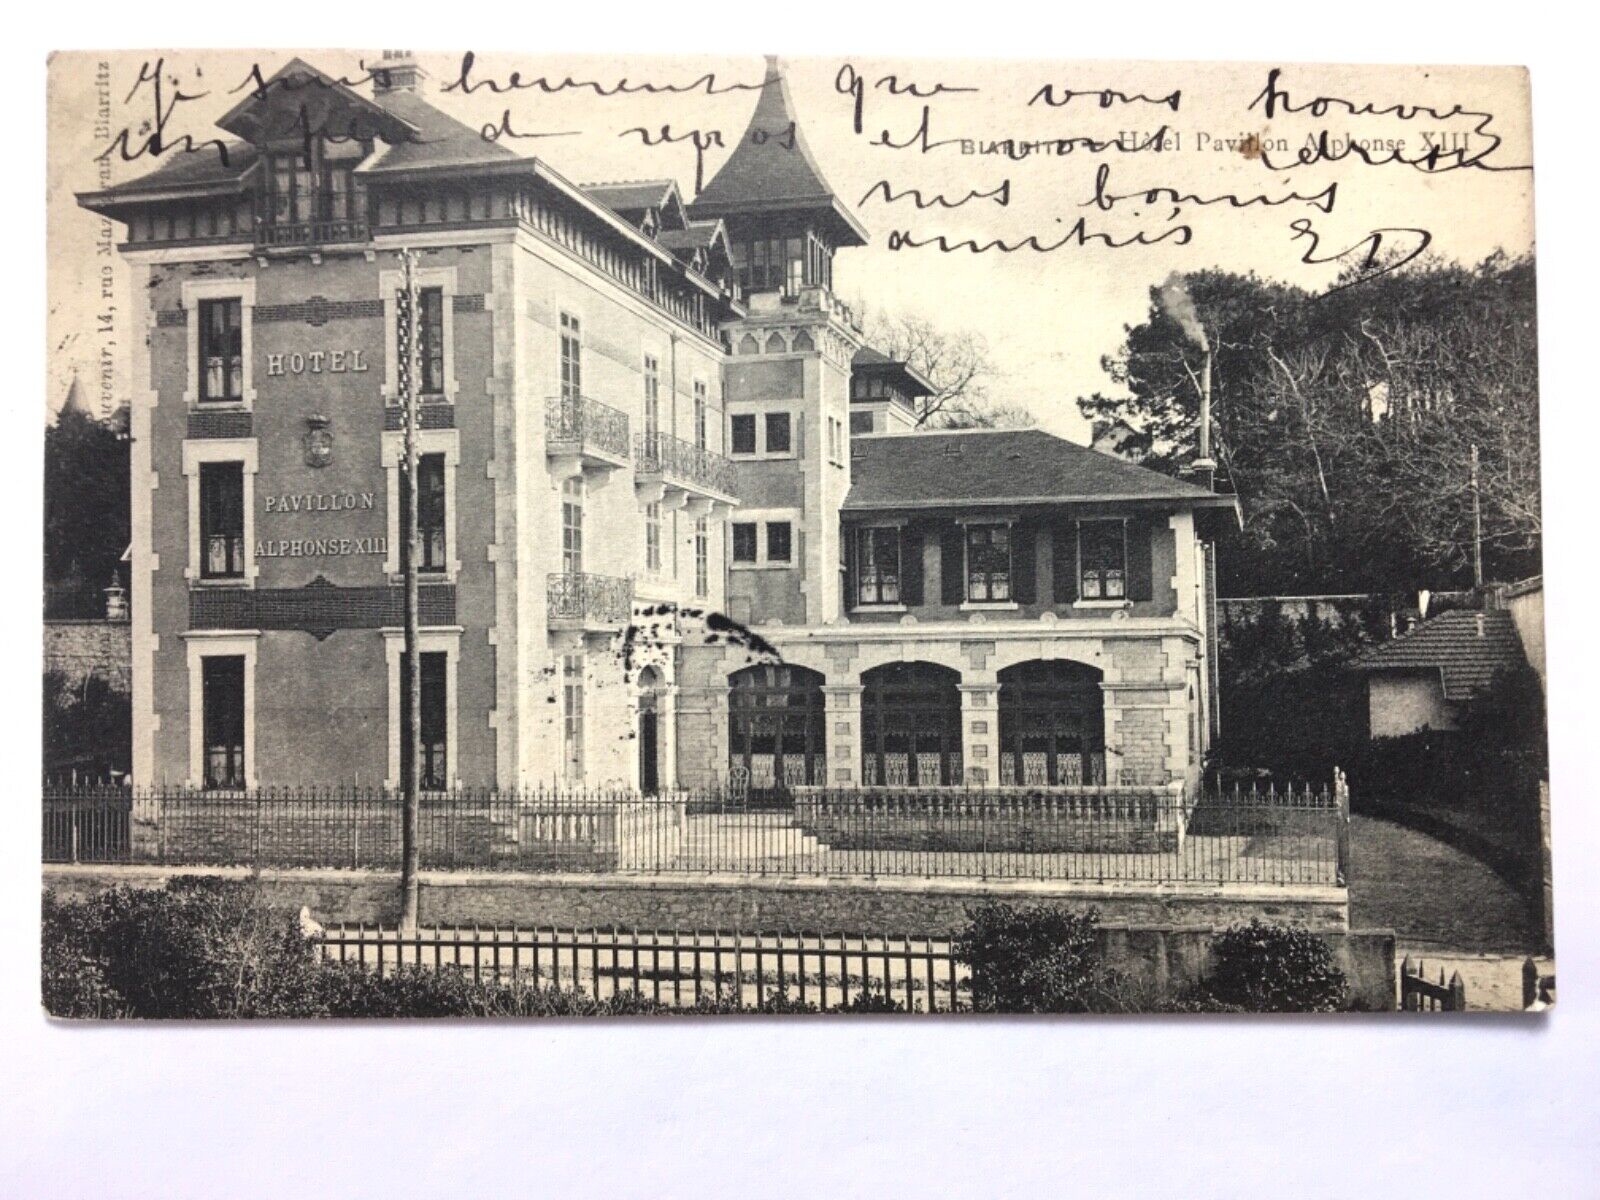 Je suis heureuse que vous trouviez
un peu de repos et vous adresse
BIARRITZ - Hôtel Pavillon Alphonse XIII
mes bonnes
amitiés ED
HOTEL
PAVILLON
ALPHONSE XIII
uvenir, 14, rue Mazagran Biarritz